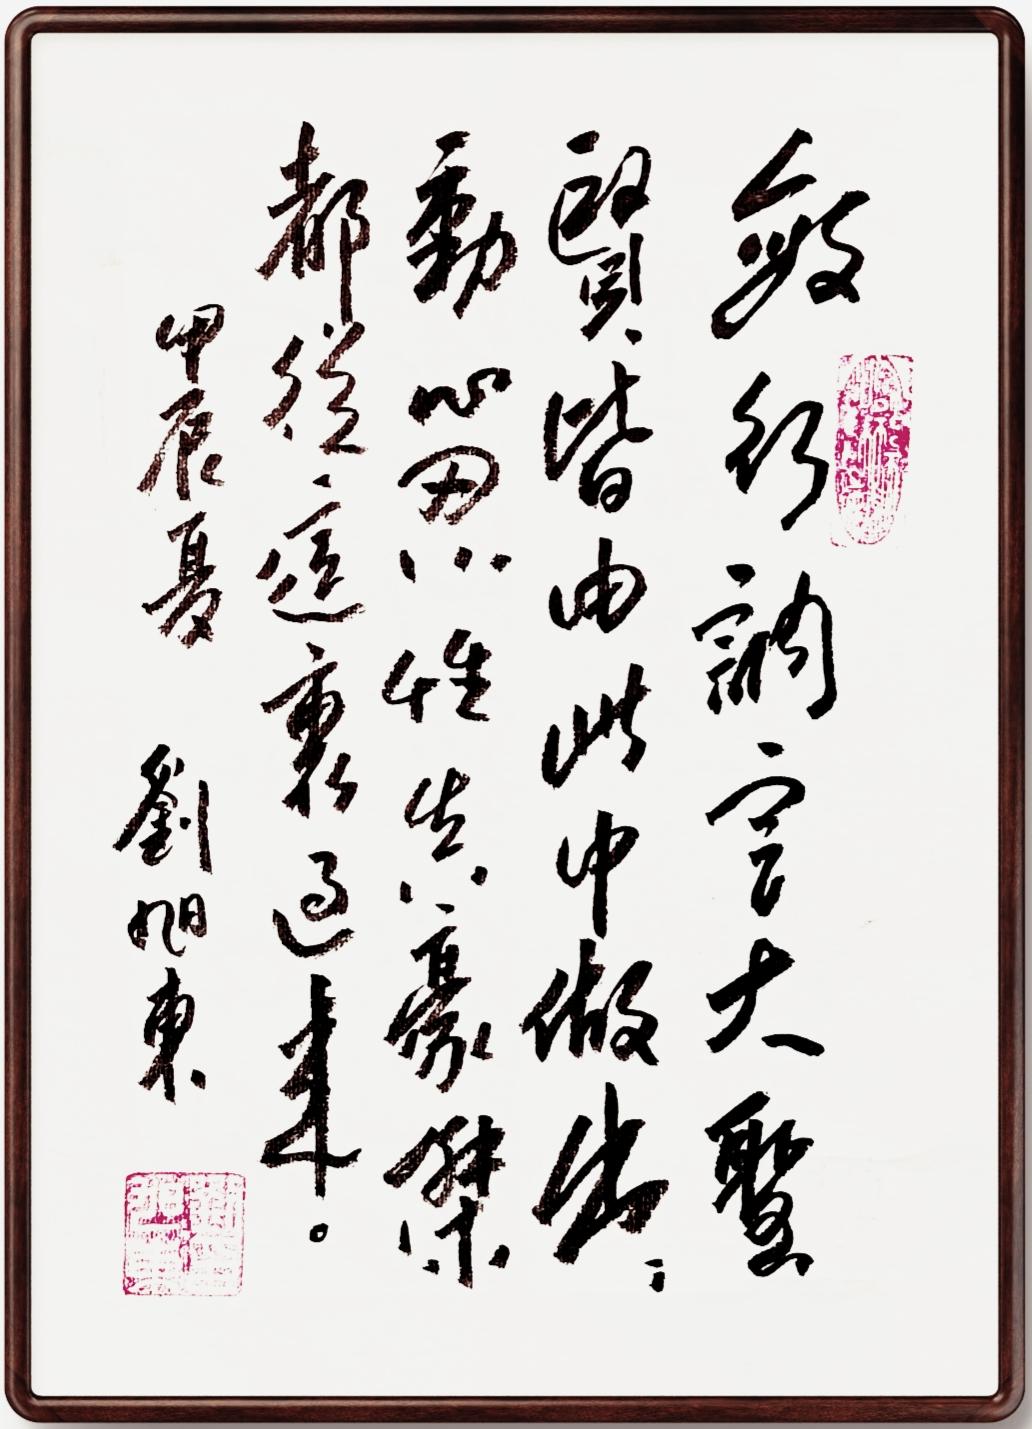 敏行訥言大聖
賢皆由此中做出；
動心忍性真豪傑
都從這裏過來。
甲辰夏 劉旭東